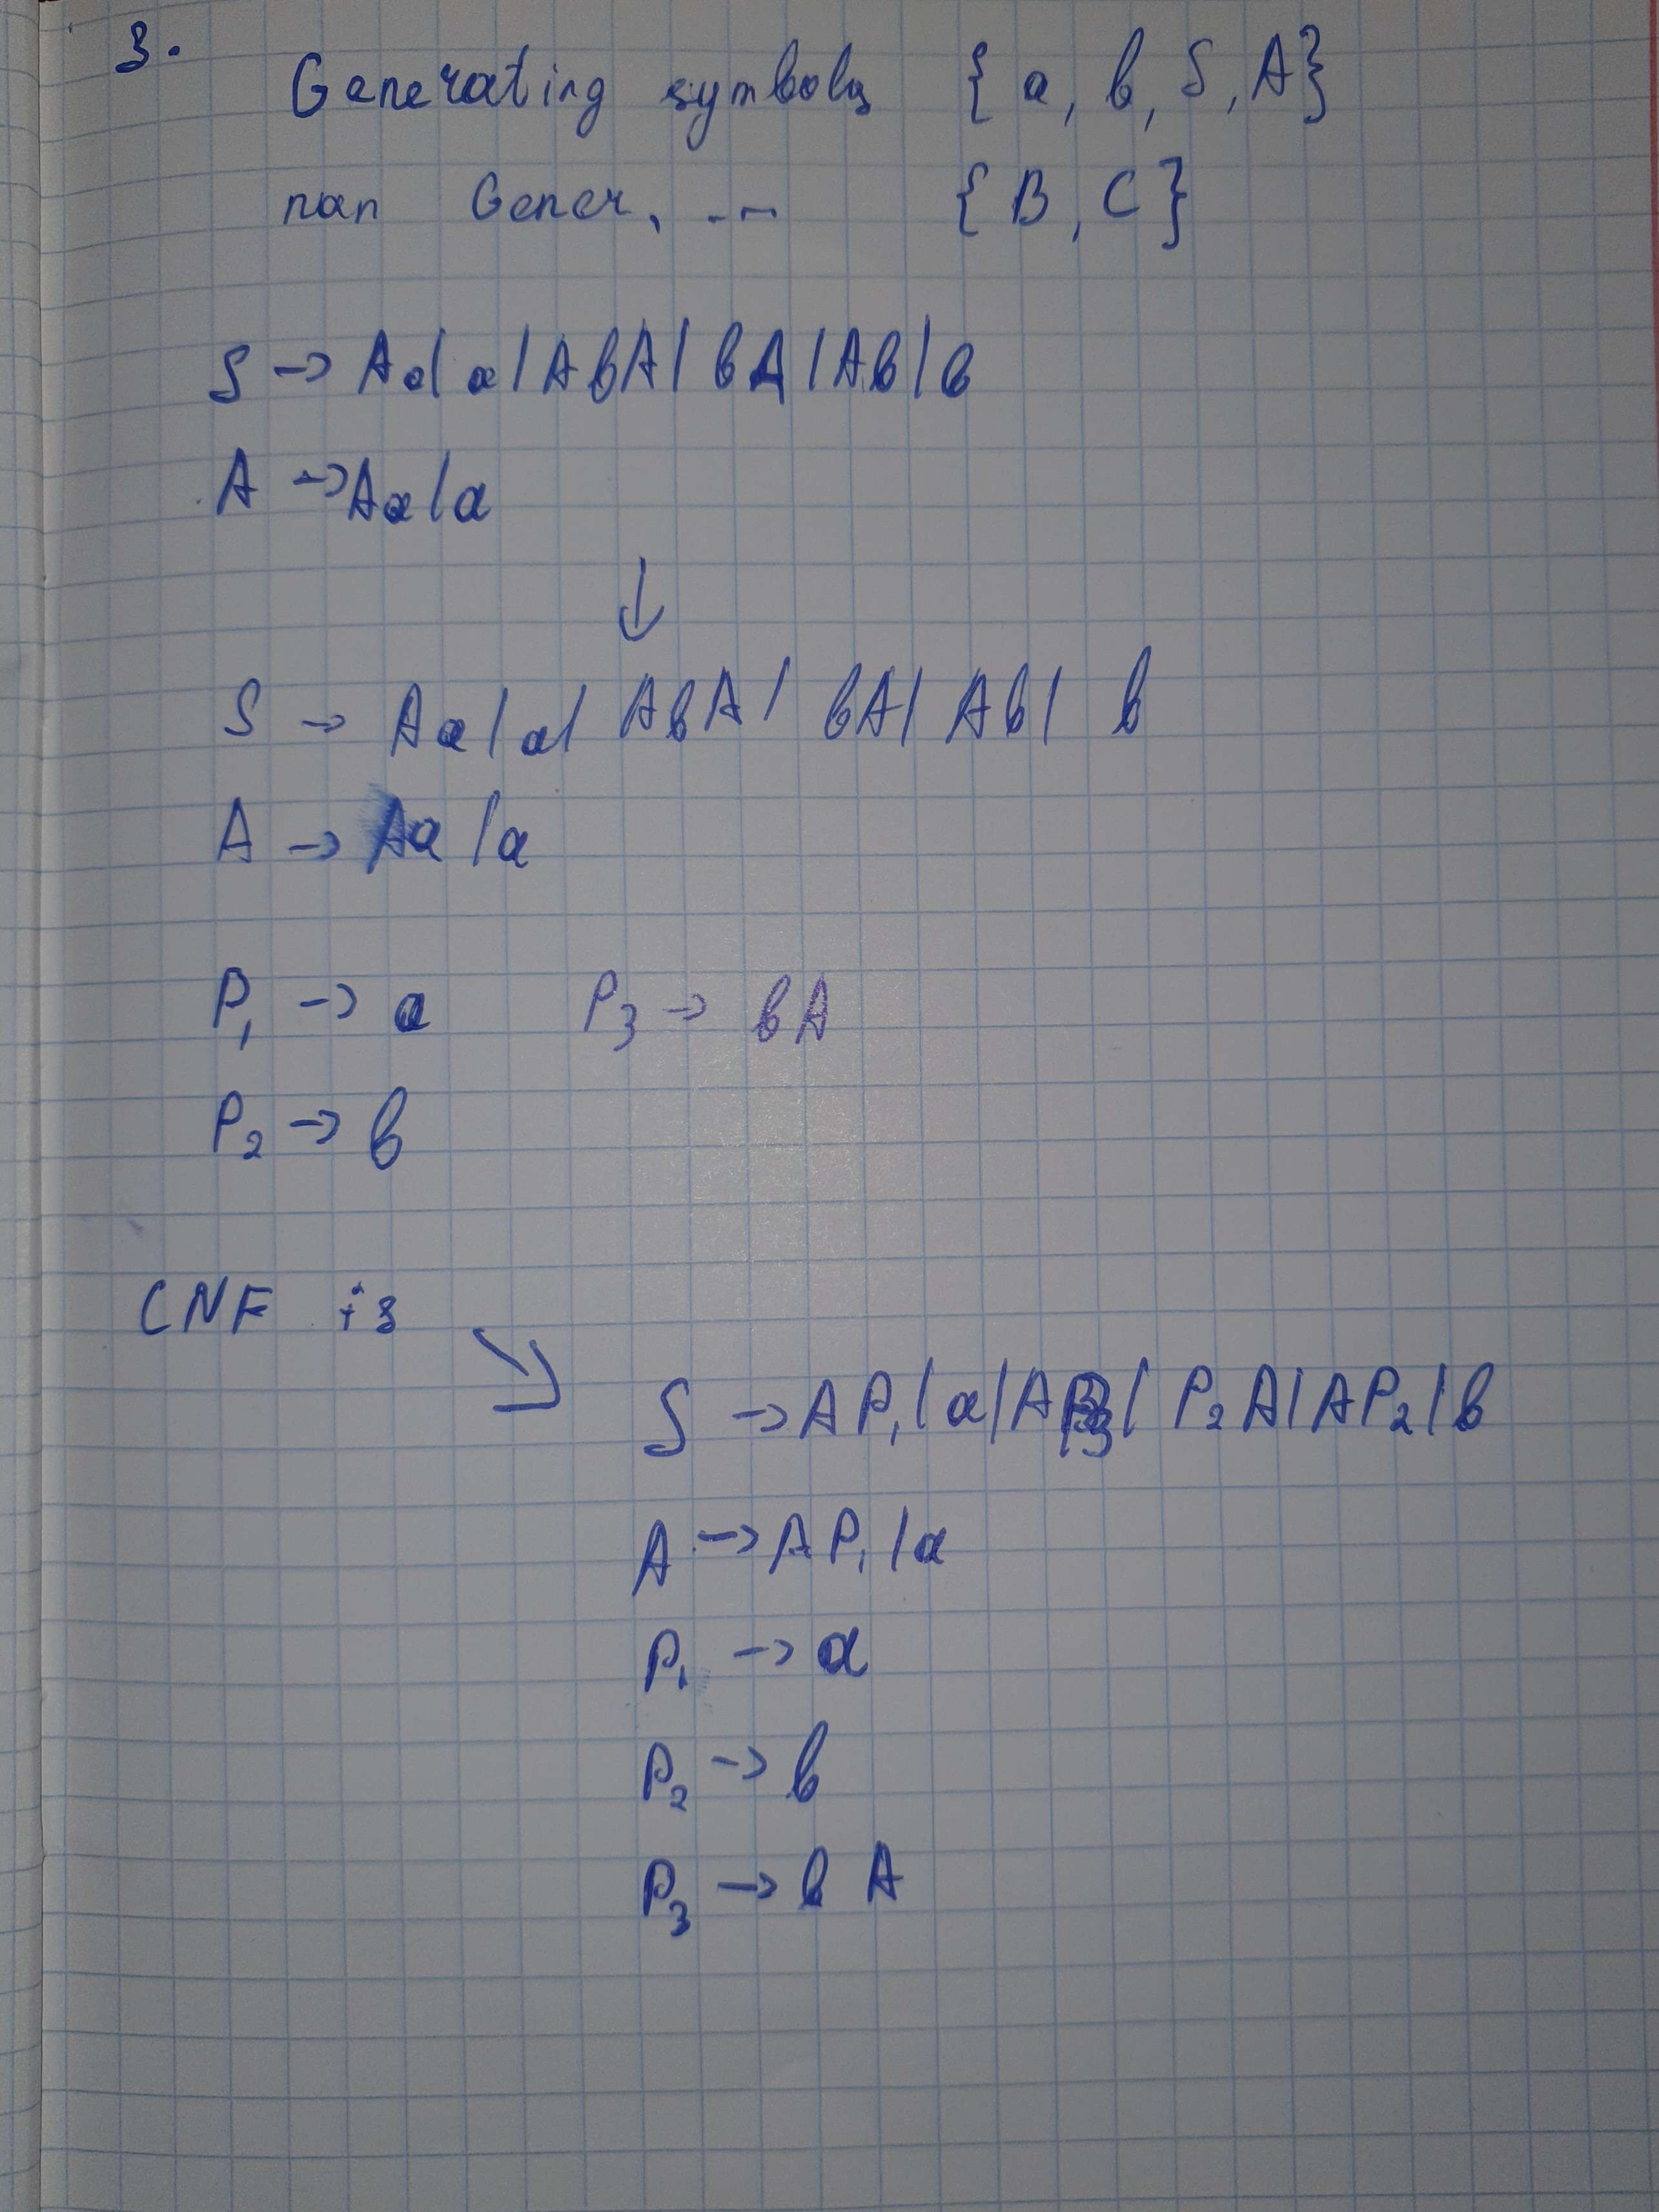 3.
Generating symbols {a, b, S, A}
nan Gener. -- {B, C}
S → Aa | a | AbA | bA | Ab | b
A → Aa | a
↓
S → Aa | a | AbA | bA | Ab | b
A → Aa | a
P₁ → a P₃ → bA
P₂ → b
CNF is
S → AP₁ | a | AP₃ | P₂A | AP₂ | b
A → AP₁ | a
P₁ → a
P₂ → b
P₃ → b A